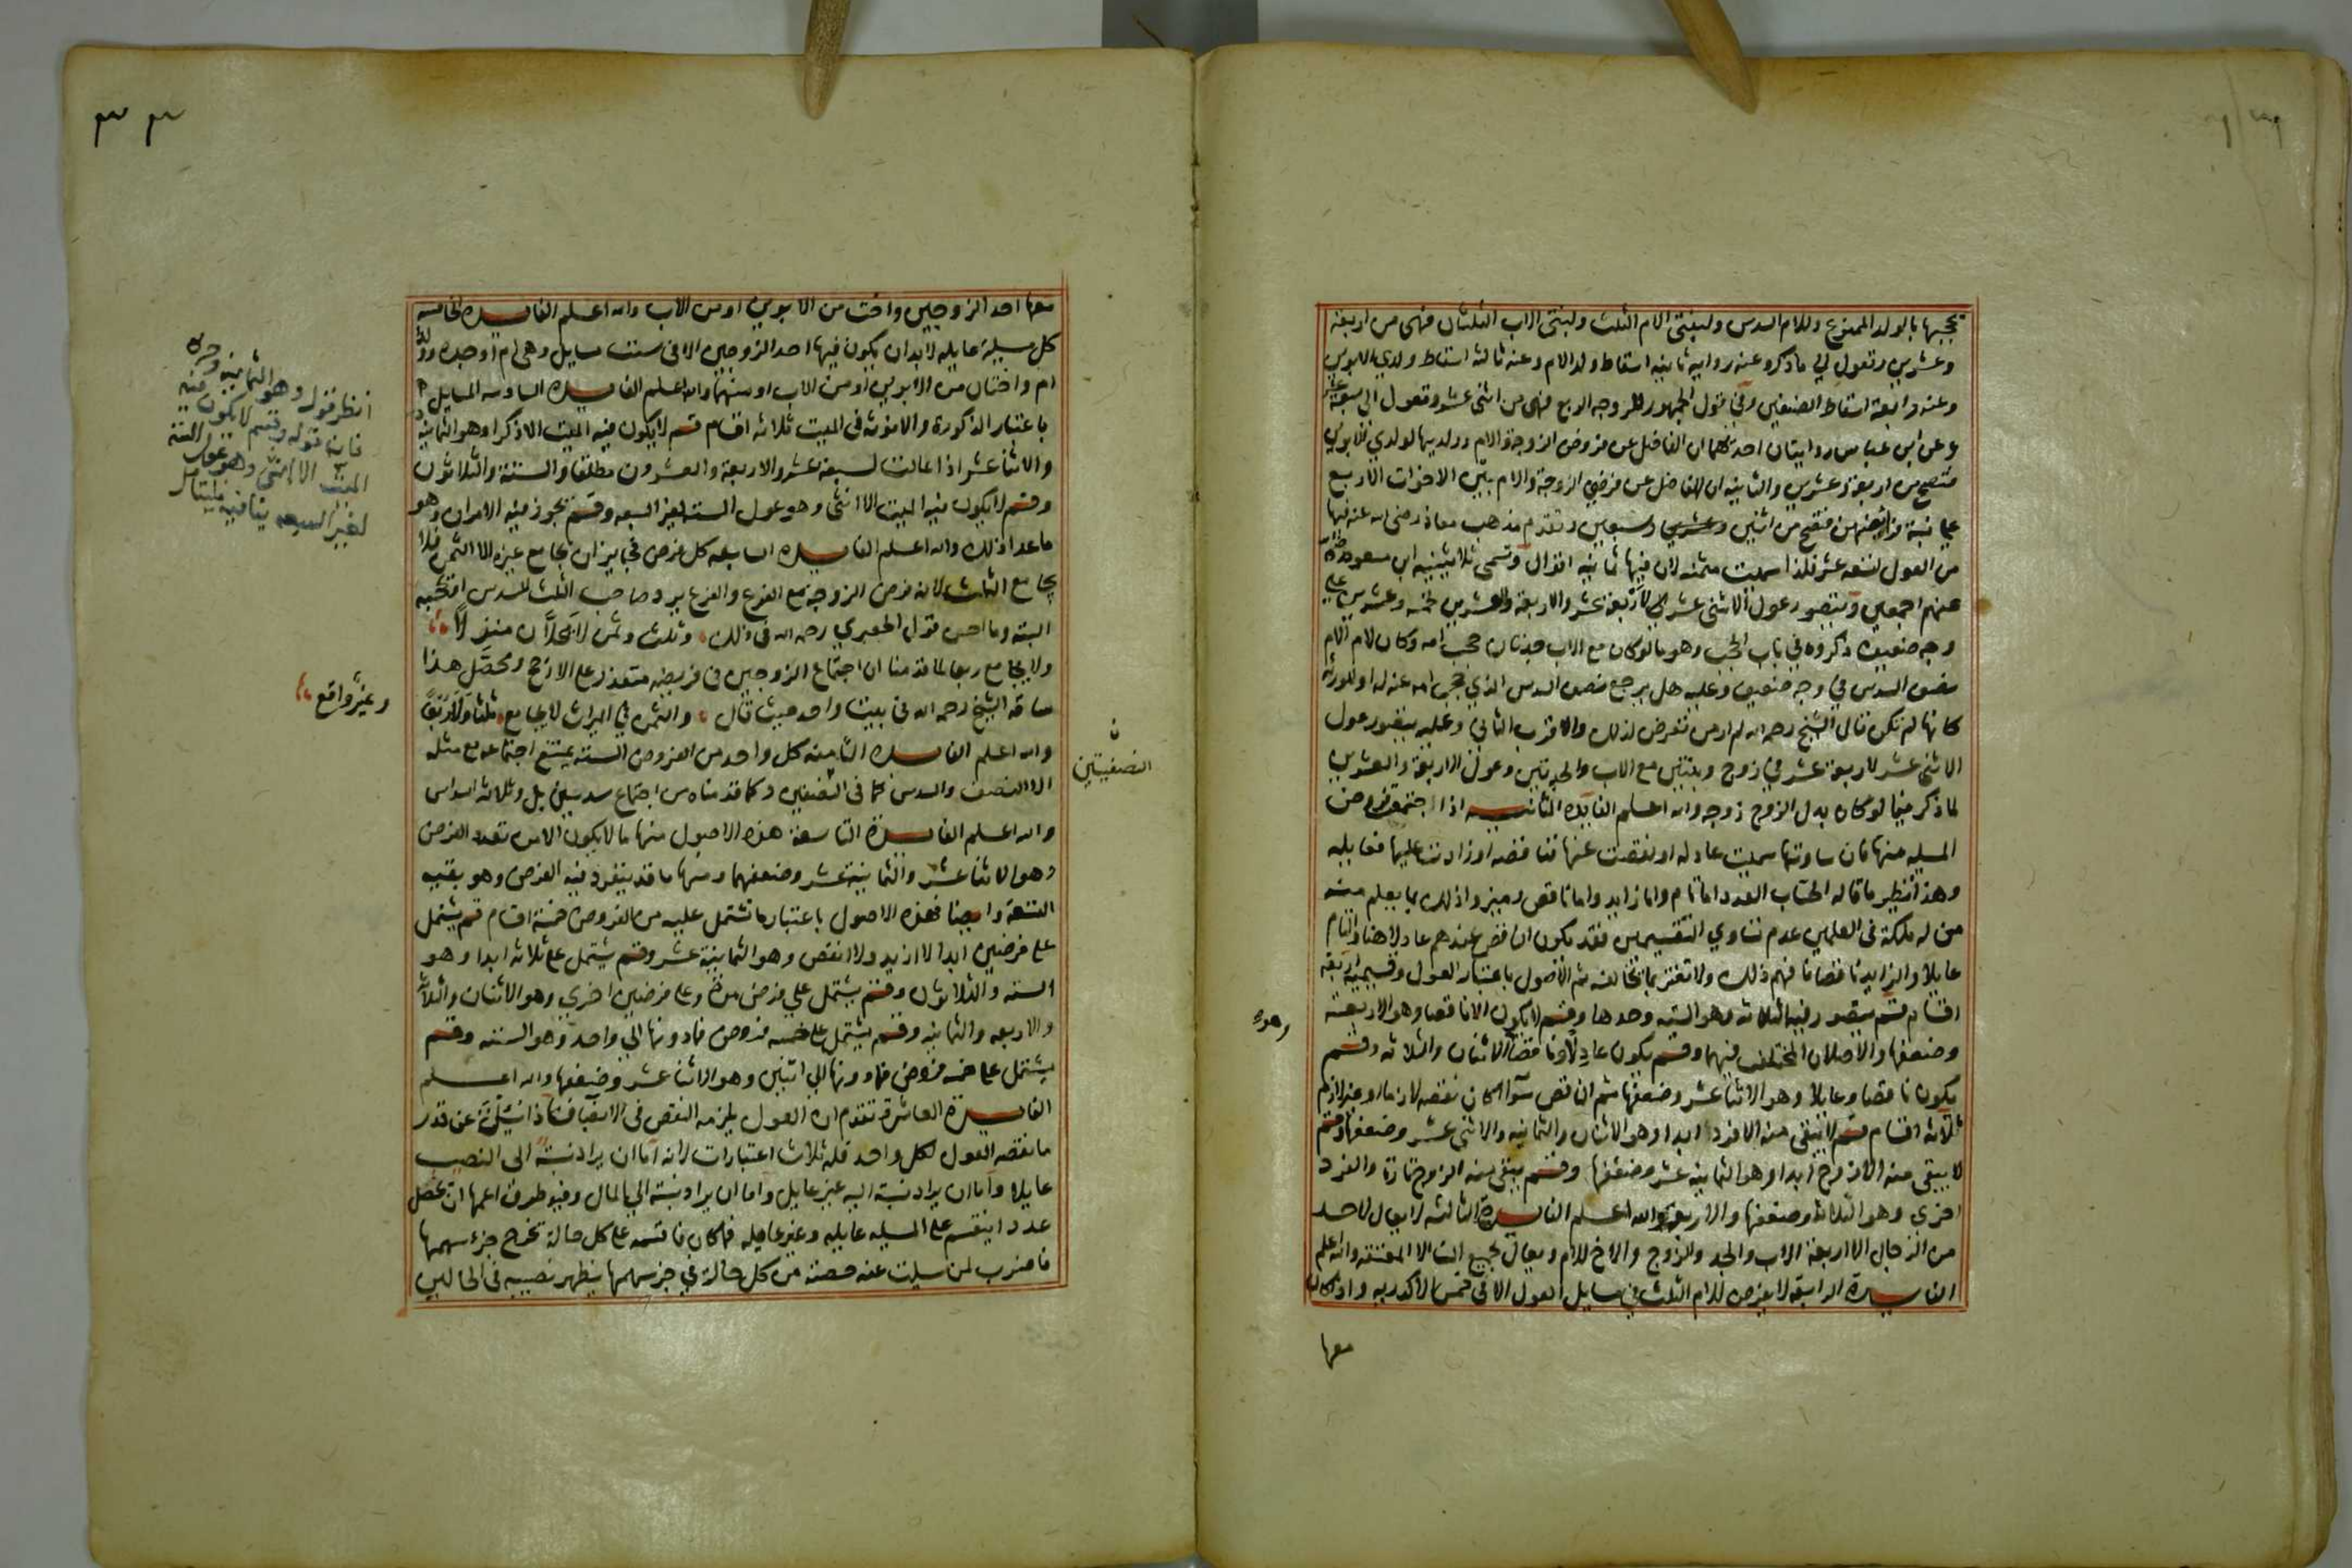 يحجبها بالولد الممنوع وللام السدس ولبنتى الام الثلث ولبنتى الاب الثلثان فهى من اربعة
وعشرين وتعول الي ما ذكر وعنه رواية ثانية اسقاط ولد الام وعنه ثالثة اسقاط ولدي الابوين
وعنه رابعة اسقاط الصنفين وفي قول الجمهور للزوجه الربع فهى من اثنى عشر وتعول الى سبعة عشر
وعن ابن عباس روايتان احدهما ان الفاضل عن فروض الزوجة والام وولديها لولدي الابوين
فتصح من اربعة وعشرين والثانيه ان الفاضل عن فرضي الزوجة والام بين الاخوات الاربع
فتصح من اثنين وسبعين وتقدم مذهب معاذ رضى الله عنه فيها
من العول لتسعه عشر فلذا سميت مثمنه لان فيها ثمانيه اقوال وتسمى ثلاثينية ابن مسعود رضي الله
عنهم اجمعين ويتصور عول الاثنى عشر الي لاربعة عشر والاربعة والعشرين لخمسه وعشرين علي
وجه ضعيف ذكروه في باب الحجب وهو ما لو كان مع الاب جدتان حجب امه وكان لام الام
نصف السدس في وجه ضعيف وعليه هل يرجع نصف السدس الذي حجب امه عنه له او للورثه
كانها لم تكن قال الشيخ رحمه الله لم ار من تعرض لذلك والاقرب الثاني وعليه يتصور عول
الاثنى عشر لاربعة عشر في زوج وبنتين مع الاب والجدتين وعول الاربعة والعشرين
لما ذكر فيما لو كان بدل الزوج زوجه والله اعلم الفائدة الثانيه اذا اجتمع فروض
المسيله منها فان ساوتها سميت عادله او نقصت عنها فناقصه او زادت عليها فعايله
وهذا نظير ما قاله الحساب العدد اما تام واما زايد واما ناقص وميزوا ذلك بما يعلم منه
من له ملكة في العلمين عدم تساوي التقسيمين فقد يكون الناقص عندهم عادلا هنا والتام
عايلا والزايد ناقصا فافهم ذلك ولا تغتر بما يخالفه ثم الاصول باعتبار العول وقسيميه اربعة
اقسام قسم يتصور فيه الثلاثه وهو الستة وحدها وقسم لا يكون الا ناقصا وهو الاربعة
وضعفها والاصلان المختلف فيهما وقسم يكون عادلا وناقصا الاثنان والثلاثه وقسم
يكون ناقصا وعايلا وهو الاثنا عشر وضعفها ثم الناقص سوآ كان نقصه لازما او غير لازم
ثلاثه اقسام قسم لا يبقى منه الا فردا ابدا وهو الاثنان والثمانيه والاثنى عشر وضعفها وقسم
لا يبقى منه الا زوج ابدا وهو الثمانيه عشر وضعفها وقسم يبقى منه الزوج تارة والفرد
اخرى وهو الثلاثة وضعفها والاربعة والله اعلم الفائدة الثالثه لا يعال لاحد
من الرجال الا اربعة الاب والجد والزوج والاخ للام ويعال لجميع النسا الا المعتقه والله اعلم
الفائدة الرابعة لا يفرض للام الثلث في مسايل العول الا في خمس الاكدريه واذا كان
معها
وهو
معها احد الزوجين واخت من الابوين او من الاب والله اعلم الفائدة الخامسه
كل مسيلة عايله لابد ان يكون فيها احد الزوجين الا في ست مسايل وهى ام او جده وولدا
ام واختان من الابوين او من الاب او منهما والله اعلم الفائدة السادسه المسايل
باعتبار الذكورة والانوثه في الميت ثلاثه اقسام قسم لا يكون فيه الميت الا ذكرا وهو الثمانيه
والاثنا عشر اذا عالت لسبعة عشر والاربعة والعشرون مطلقا والستة والثلاثون
وقسم لا يكون فيه الميت الا انثى وهو عول الستة لغير السبعه وقسم يجوز فيه الامران وهو
ما عدا ذلك والله اعلم الفائدة السابعه كل فرض فجايز ان يجامع غيره الا الثمن فلا
يجامع الثلث لانه فرض الزوجه مع الفرع والفرع يرد صاحب الثلث للسدس او يحجبه
البته وما احسن قول الجعبري رحمه الله في ذلك وثلث وثمن لا يحلان منزلا
ولا يجامع ربعا لما قدمنا ان اجتماع الزوجين في فريضه متعذر على الارجح ومحصل هذا
ساقه الشيخ رحمه الله في بيت واحد حيث قال والثمن في الميراث لا يجامع ثلثا ولا ربعا
وغير واقع
والله اعلم الفائدة الثامنه كل واحد من الفروض الستة يمتنع اجتماعه مع مثله
الا النصف والسدس كما في النصفين وكما قدمناه من اجتماع سدسين بل وثلاثه اسداس
والله اعلم الفائدة التاسعة هذه الاصول منها ما لا يكون الا من تعدد الفرض
وهو الاثنا عشر والثمانية عشر وضعفهما ومنها ما قد ينفرد فيه الفرض وهو بقيه
التسعة وايضا فهذه الاصول باعتبار ما تشتمل عليه من الفروض خمسة اقسام قسم يشتمل
على فرضين ابدا لا ازيد ولا انقص وهو الثمانية عشر وقسم يشتمل على ثلاثه ابدا وهو
الستة والثلاثون وقسم يشتمل على فرض مرة وعلى فرضين اخري وهو الاثنان والثلاثه
والاربعه والثمانيه وقسم يشتمل على خمسه فروض فما دونها الي واحد وهو الستة وقسم
يشتمل على خمسه فروض فما دونها الي اثنين وهو الاثنا عشر وضعفها والله اعلم
الفائدة العاشرة تقدم ان العول يلزمه النقص في الانصبا فاذا سئلت عن قدر
ما نقصه العول لكل واحد فله ثلاث اعتبارات لانه اما ان يراد نسبته الى النصيب
عايلا واما ان يراد نسبته اليه غير عايل واما ان يراد نسبته الي المال وفيه طرق اعمها ان تحصل
عددا ينقسم على المسيله عايله وغير عايله فما كان فاقسمه على كل حالة تخرج جزء سهمها
فاضرب لمن سيلت عنه حصته من كل حالة في جزء سهمها يظهر نصيبه في الحالين
النصفيتين
انظر قول وهو الثمانية وحره
فان قوله وقسم لا يكون فيه
الميت الا انثى وهو عول الستة
لغير السبعه ينافيه فليتامل
٣٣